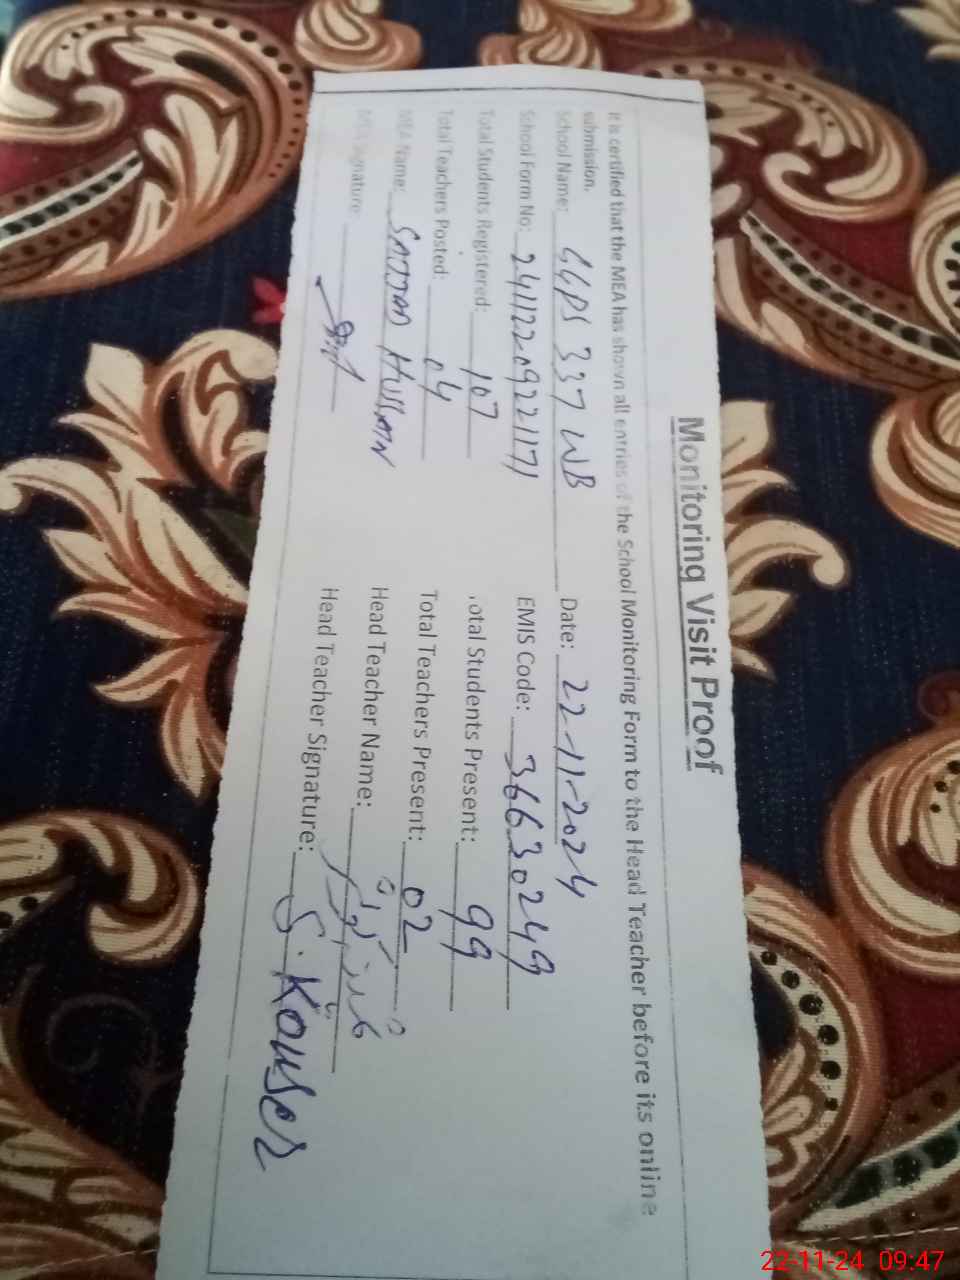 Monitoring Visit Proof
It is certified that the MEA has shown all entries of the School Monitoring Form to the Head Teacher before its online
submission.
School Name: GGPS 337 WB Date: 22-11-2024
School Form No: 24112209221171 EMIS Code: 36630249
Total Students Registered: 107 Total Students Present: 99
Total Teachers Posted: 04 Total Teachers Present: 02
MEA Name: SAJJAD HUSSAIN Head Teacher Name:
MEA Signature: Head Teacher Signature: S. Kouser
22-11-24 09:47